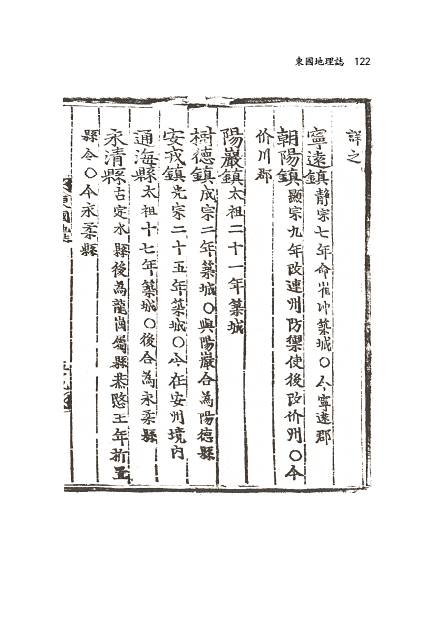 東國地理誌 122
詳之
寧遠鎮靜宗七年命崔冲築城○今寧遠郡
朝陽鎮顯宗九年改連州防禦使後改价州○今
价川郡
陽巖鎮太祖二十一年築城
樹德鎮成宗二年築城○與陽巖合為陽德縣
安戎鎮光宗二十五年築城○今在安州境內
通海縣太祖十七年築城○後合為永柔縣
永清縣古定水縣後為龍崗屬縣恭愍王年析置
縣令○今永柔縣